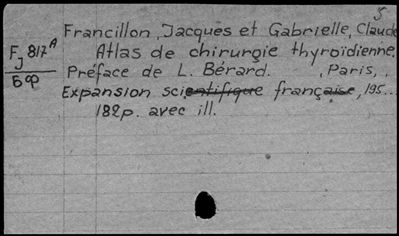 5
Francillon, Jacques et Gabrielle, Claude
F 817ᴬ
J
Бф
Atlas de chirurgie thyroïdienne.
Préface de L. Bérard. , Paris, ,
Expansion scientifique française, 195...
182p. avec ill.